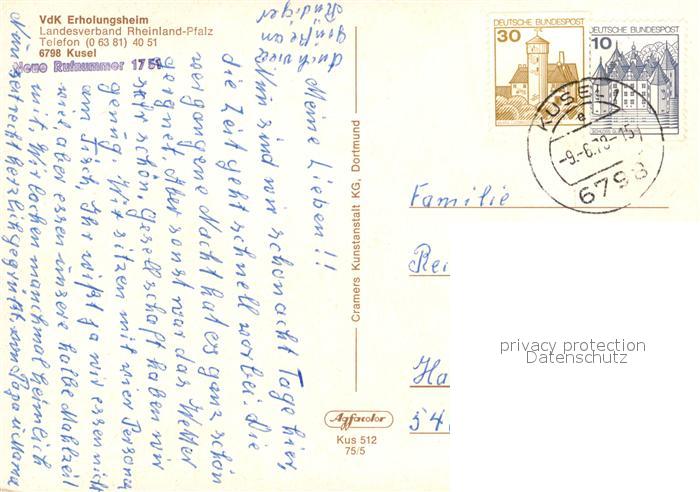 VdK Erholungsheim
Landesverband Rheinland-Pfalz
Telefon (0 63 81) 40 51
6798 Kusel
Neue Rufnummer 17 51
Meine Lieben!!
Nun sind wir schon acht Tage hier,
die Zeit geht schnell vorbei. Die
vergangene Nacht hat es ganz schön
geregnet, Aber sonst war das Wetter
sehr schön, Gesellschaft haben wir
genug. Wir sitzen mit vier Personen
am Tisch, Ihr wißt ja wir essen nicht
viel, aber essen unsere halbe Mahlzeit
mit. Wir lachen manchmal heimlich
Nun seit recht herzlich gegrüßt von Papa u. Mama
Auch viele
Grüße an
Rüdiger
Cramers Kunstanstalt KG, Dortmund
Agfacolor
Kus 512
75/5
DEUTSCHE BUNDESPOST
30
DEUTSCHE BUNDESPOST
10
KUSEL
e
-9.-6.78-15
6798
Familie
Rei
Ha
54
privacy protection
Datenschutz